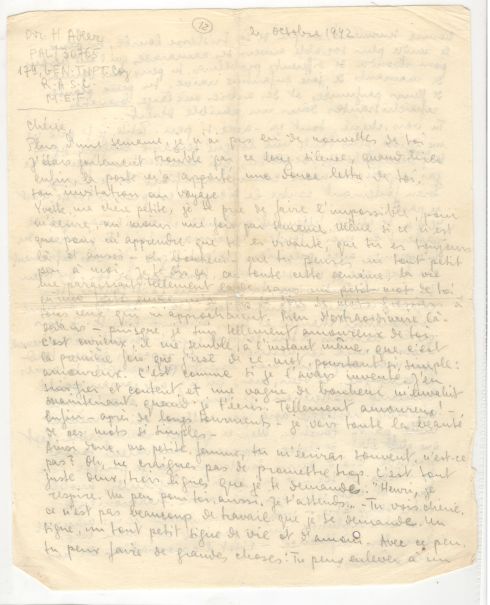 Dr. H
PAL/30765
179, GEN. TNPT. Coy
R.A.S.C.
M.E.F.
12
2 octobre 1942
Chérie,
Plus d'une semaine, je n'ai pas eu de nouvelles de toi.
J'étais justement troublé par ce long silence, quand hier
enfin, la poste m'a apporté une douce lettre de toi,
ton invitation au voyage.
Yvette, ma chère petite, je te prie de faire l'impossible, pour
m'écrire, au moins une fois par semaine. Même si ce n'est
que pour m'apprendre que tu es vivante, que tu es toujours
là et aussi - oh bonheur - que tu penses, un tout petit
peu à moi. toute cette semaine, la vie
me paraissait tellement sans un petit mot de toi
à
tous ceux qui m'approchaient. Rien d'extraordinaire là-
dedans - puisque je suis tellement amoureux de toi.
c'est curieux; il me semble, à l'instant même, que c'est
la première fois que j'use de ce mot, pourtant si simple:
amoureux. C'est comme si je l'avais inventé. J'en
suis fier et content et une vague de bonheur m'envahit
maintenant quand je t'écris. Tellement amoureux! -
Enfin - après de longs tourments - je vois toute la beauté
de ces mots si simples -
Ainsi donc, ma petite femme, tu m'écriras souvent, n'est-ce
pas? Oh, ne crains pas de promettre trop. C'est tout
juste deux, trois lignes que je te demande. "Henri, je
respire. Un peu pour toi, aussi. Je t'attends." - Tu vois chérie,
ce n'est pas beaucoup de travail que je te demande. Un
signe, un tout petit signe de vie et d'amour - Avec ce peu,
tu peux faire de grandes choses: Tu peux enlever à un